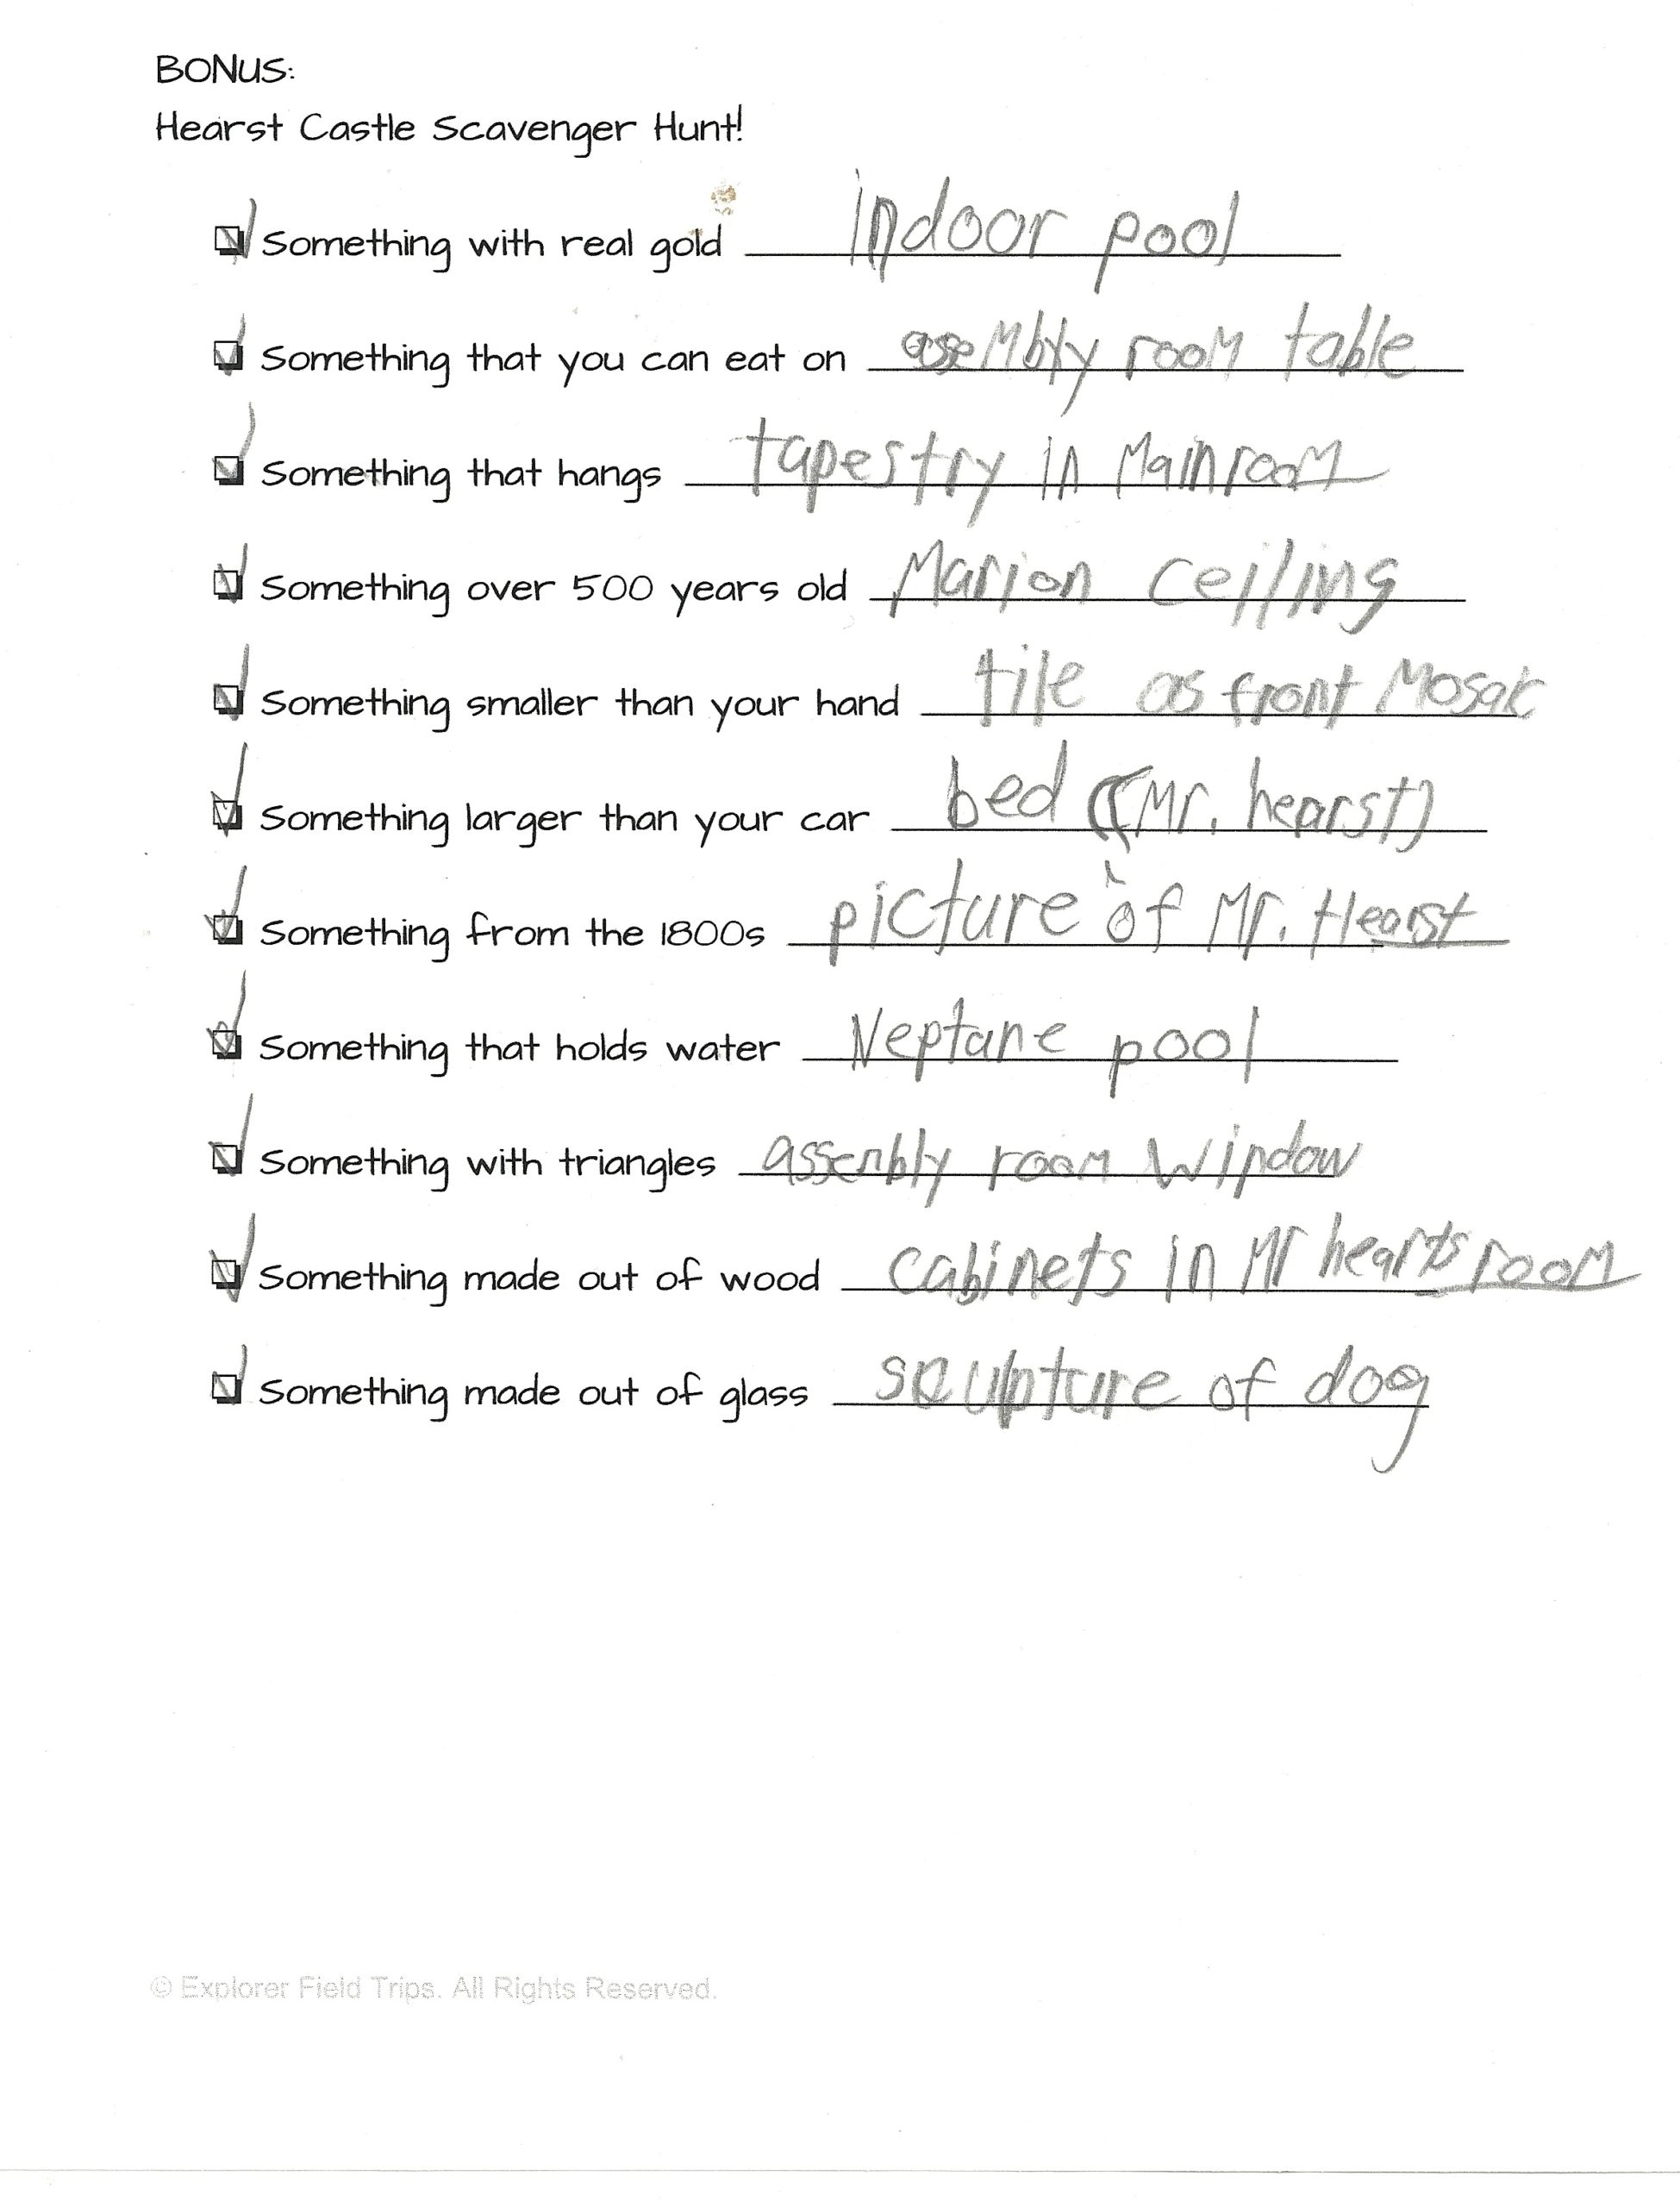 BONUS:
Hearst Castle Scavenger Hunt!
Something with real gold indoor pool
Something that you can eat on assembly room table
Something that hangs tapestry in Mainroom
Something over 500 years old Marion ceiling
Something smaller than your hand tile as front Mosaic
Something larger than your car bed (Mr. hearst)
Something from the 1800s picture of Mr. Hearst
Something that holds water Neptune pool
Something with triangles assembly room window
Something made out of wood cabinets in Mr hearts room
Something made out of glass sculpture of dog
© Explorer Field Trips. All Rights Reserved.